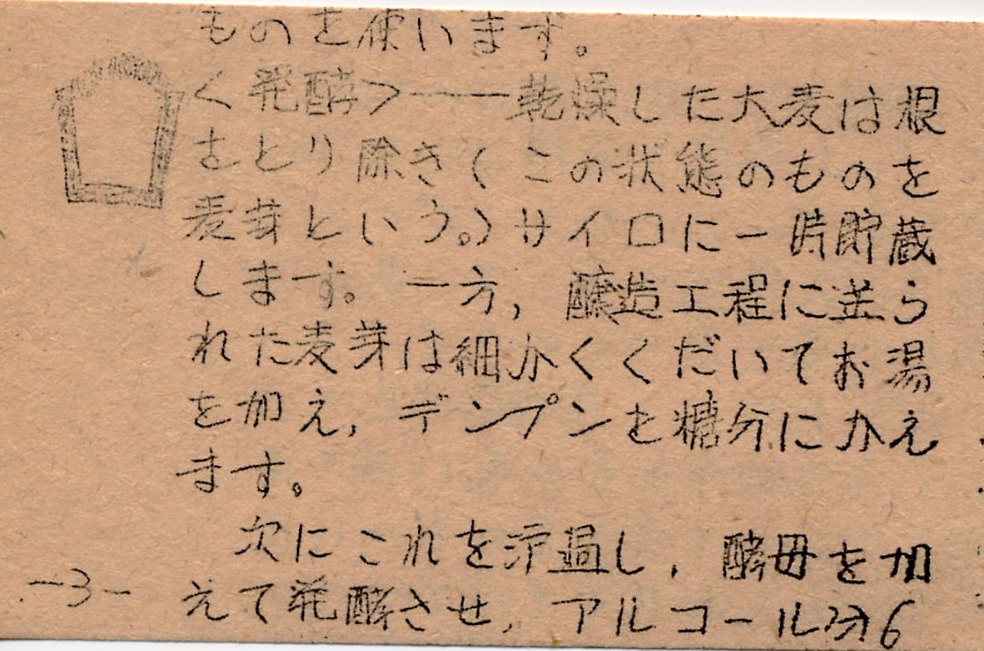 ものを使います。
<発酵>――乾燥した大麦は根
をとり除き(この状態のものを
麦芽という。)サイロに一時貯蔵
します。一方,醸造工程に送ら
れた麦芽は細かくくだいてお湯
を加え,デンプンを糖分にかえ
ます。
次にこれを沪過し,酵母を加
えて発酵させ,アルコール分6
-3-